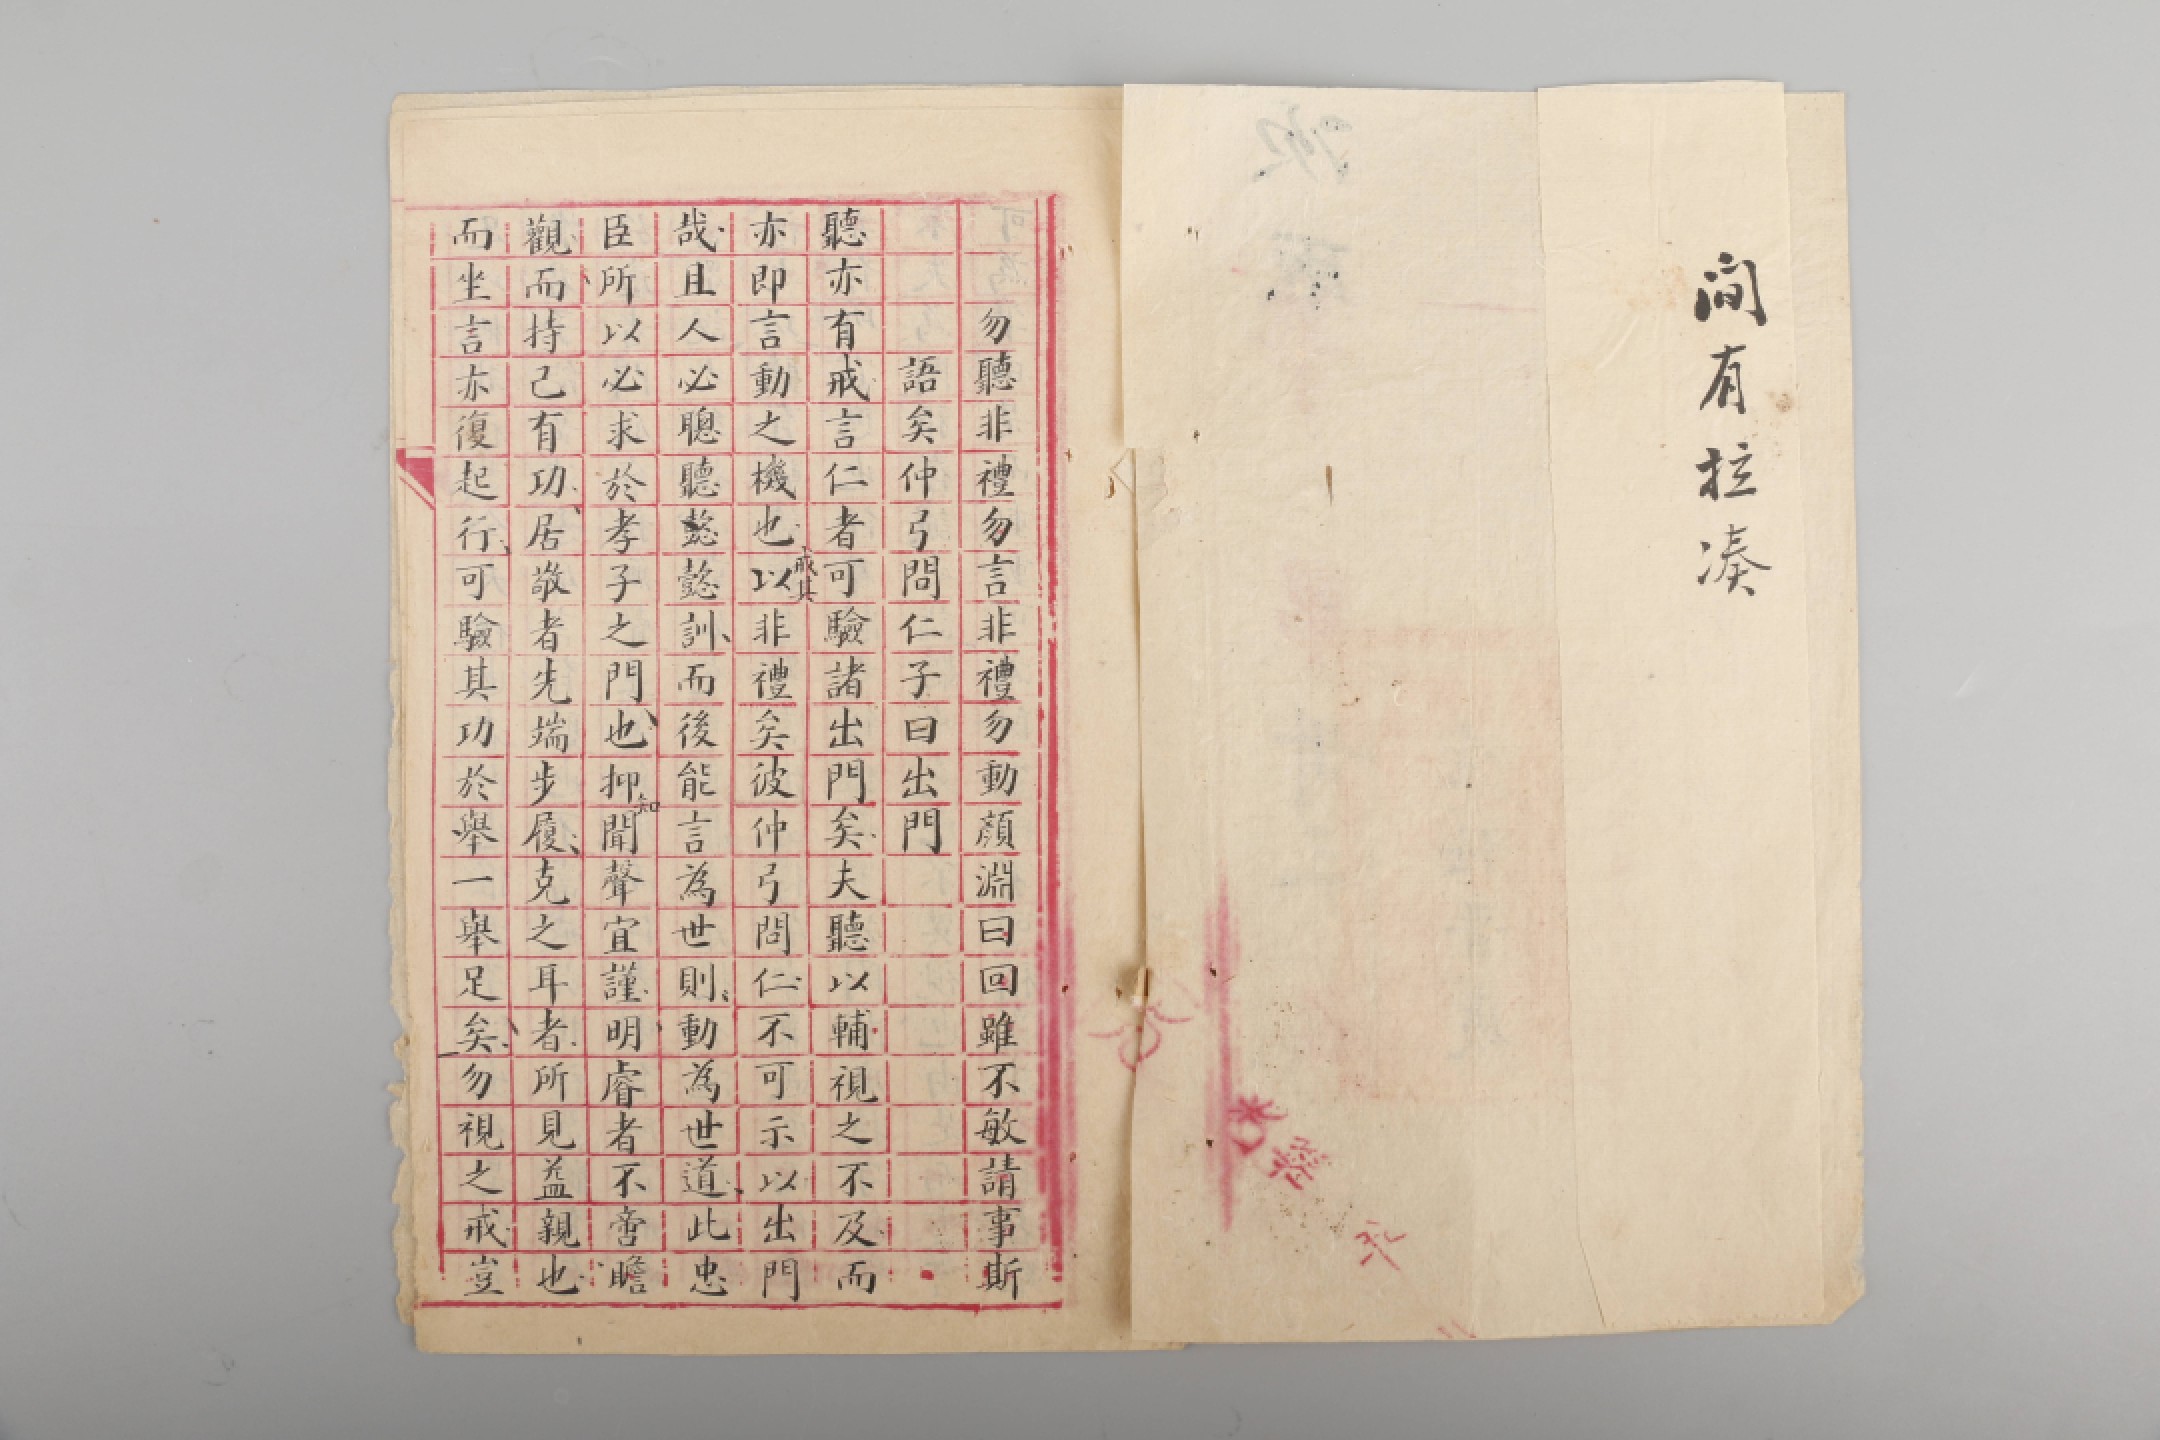 间有拉凑
勿聽非禮勿言非禮勿動顏淵曰回雖不敏請事斯
語矣仲弓問仁子曰出門
聽亦有戒言仁者可驗諸出門矣夫聽以輔視之不及而
亦即言動之機也以戒其非禮矣彼仲弓問仁不可示以出門
哉且人必聰聽懿訓而後能言為世則動為世道此忠
臣所以必求於孝子之門也抑知聞聲宜謹明睿者不啻瞻
觀而持己有功居敬者先端步履克之耳者所見益親也
而坐言亦復起行可驗其功於舉一舉足矣勿視之戒豈